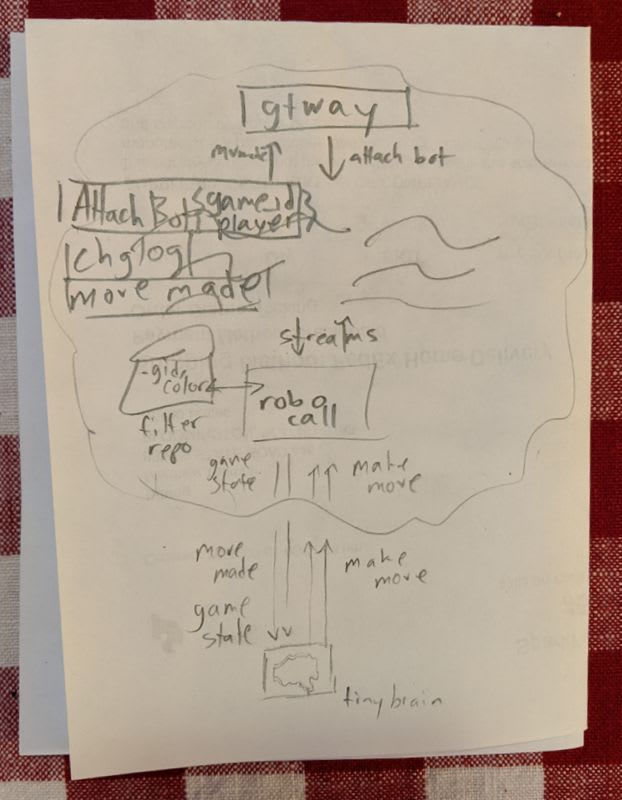 gtway
attach bot
Attach Bot {game id,
player}
chglog
move made
streams
-gid,
color
filter
repo
robo
call
game
state
make
move
move
made
make
move
game
state
tiny brain